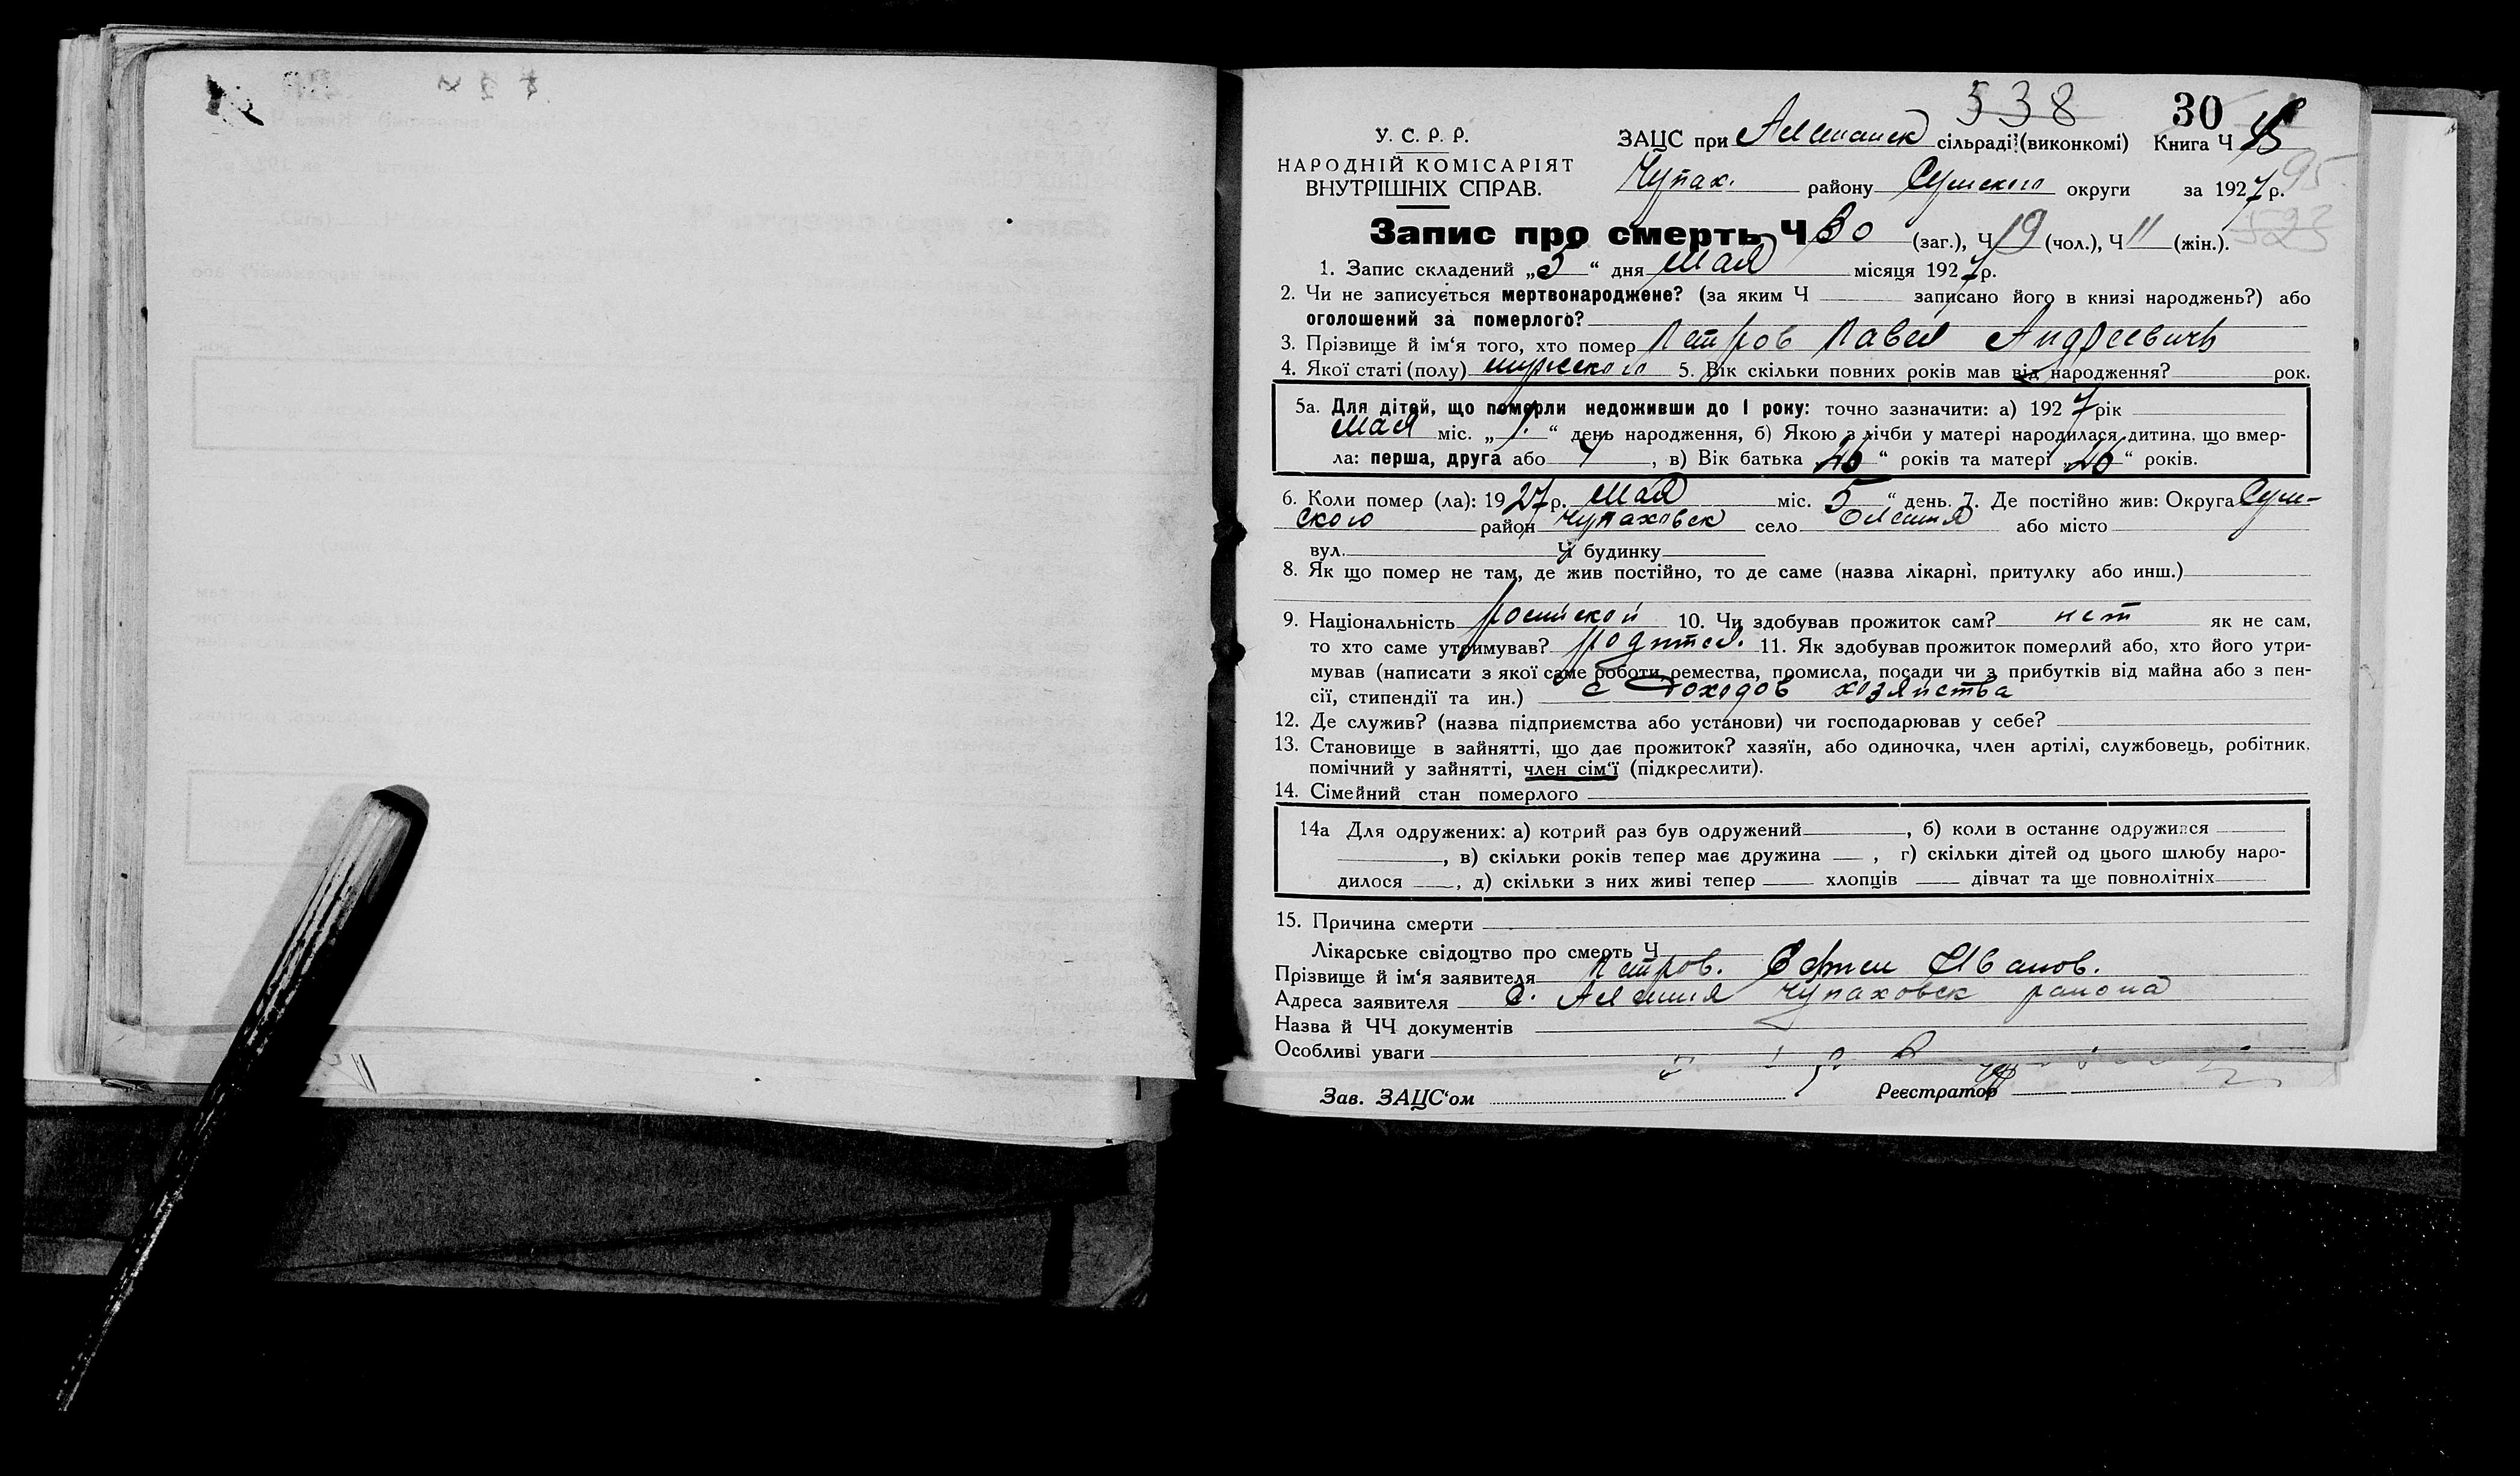 538
30
У. С. Р. Р.
НАРОДНІЙ КОМІСАРІЯТ
ВНУТРІШНІХ СПРАВ.
ЗАЦС при Алешанск сільраді (виконкомі) Книга Ч
Чупах. району Сумского округи за 1927 р.
95
523
Запис про смерть Ч 30 (заг.), Ч 19 (чол.), Ч 11 (жін.).
1. Запис складений „5“ дня мая місяця 1927 р.
2. Чи не записується мертвонароджене? (за яким Ч записано його в книзі народжень?) або
оголошений за померлого?
3. Прізвище й ім'я того, хто помер Петров Павел Андреевичь
4. Якої статі (полу) мужского 5. Вік скільки повних років мав від народження? рок.
5а. Для дітей, що померли недоживши до 1 року: точно зазначити: а) 1927 рік
мая міс. „1.“ день народження, б) Якою з лічби у матері народилася дитина, що вмер-
ла: перша, друга або 4, в) Вік батька „26“ років та матері „26“ років.
6. Коли помер (ла): 1927 р. мая міс. 5“ день. 7. Де постійно жив: Округа Сум-
ского район Чупаховск село Олешня або місто
вул. Ч будинку
8. Як що помер не там, де жив постійно, то де саме (назва лікарні, притулку або инш.)
9. Національність 10. Чи здобував прожиток сам? нет як не сам,
то хто саме утримував? родител. 11. Як здобував прожиток померлий або, хто його утри-
мував (написати з якої саме роботи, ремества, промисла, посади чи з прибутків від майна або з пен-
сії, стипендії та ин.) с доходов хозяйства
12. Де служив? (назва підприємства або установи) чи господарював у себе?
13. Становище в зайнятті, що дає прожиток? хазяїн, або одиночка, член артілі, службовець, робітник,
помічний у зайнятті, член сім'ї (підкреслити).
14. Сімейний стан померлого
14а Для одружених: а) котрий раз був одружений, б) коли в останнє одружився
, в) скільки років тепер має дружина , г) скільки дітей од цього шлюбу наро-
дилося , д) скільки з них живі тепер хлопців дівчат та ще повнолітніх
15. Причина смерти
Лікарське свідоцтво про смерть Ч
Прізвище й ім'я заявителя Петров. Ефим Иванов.
Адреса заявителя с. Алешня Чупаховск района
Назва й ЧЧ документів
Особливі уваги
Зав. ЗАЦС'ом Реєстратор